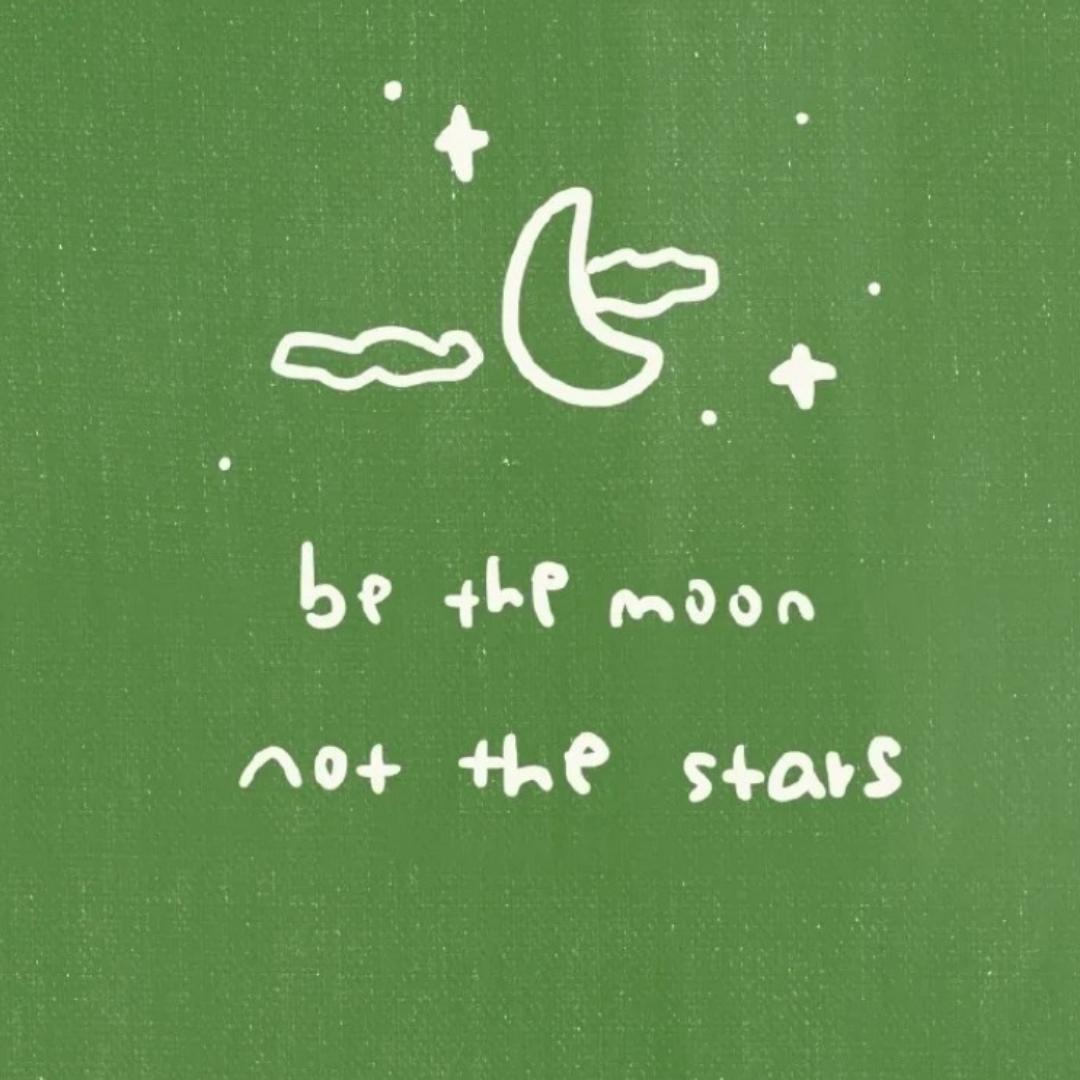 be the moon
not the stars